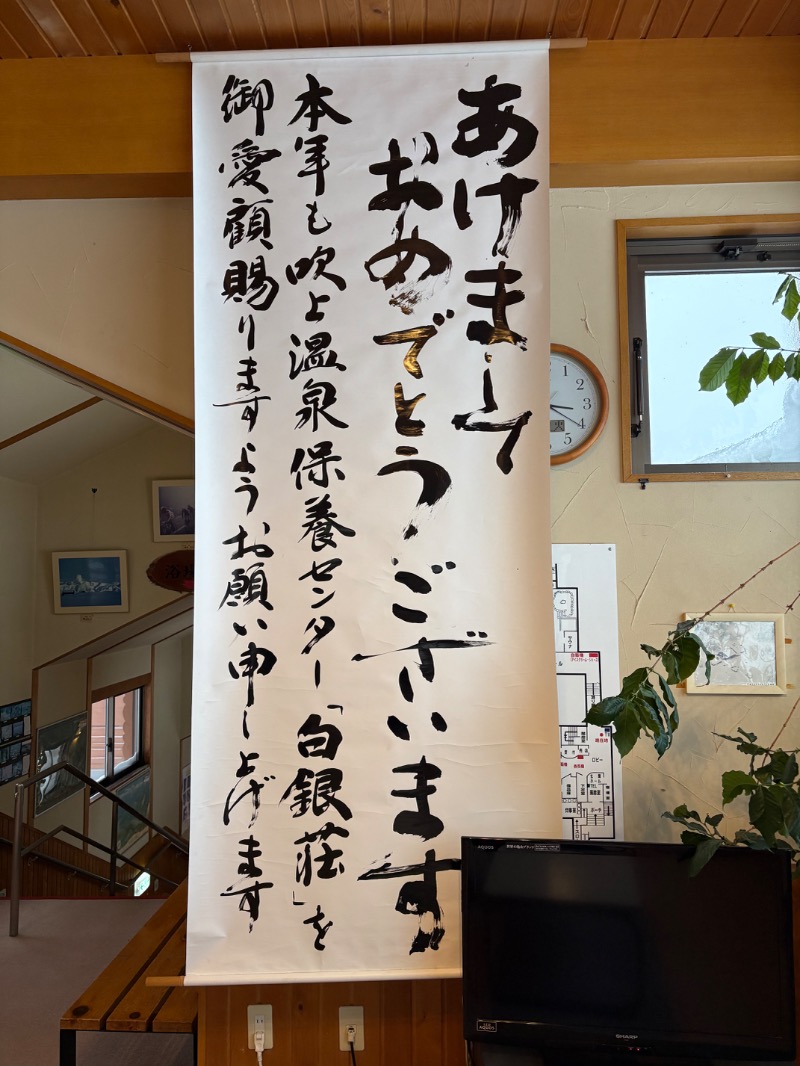 あけまして
おめでとうございます
本年も吹上温泉保養センター「白銀荘」を
御愛顧賜りますようお願い申し上げます
12
1
2
3
4
5
火
ロビー
AQUOS
SHARP